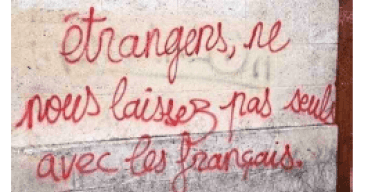 étrangers, ne
nous laissez pas seuls
avec les français.